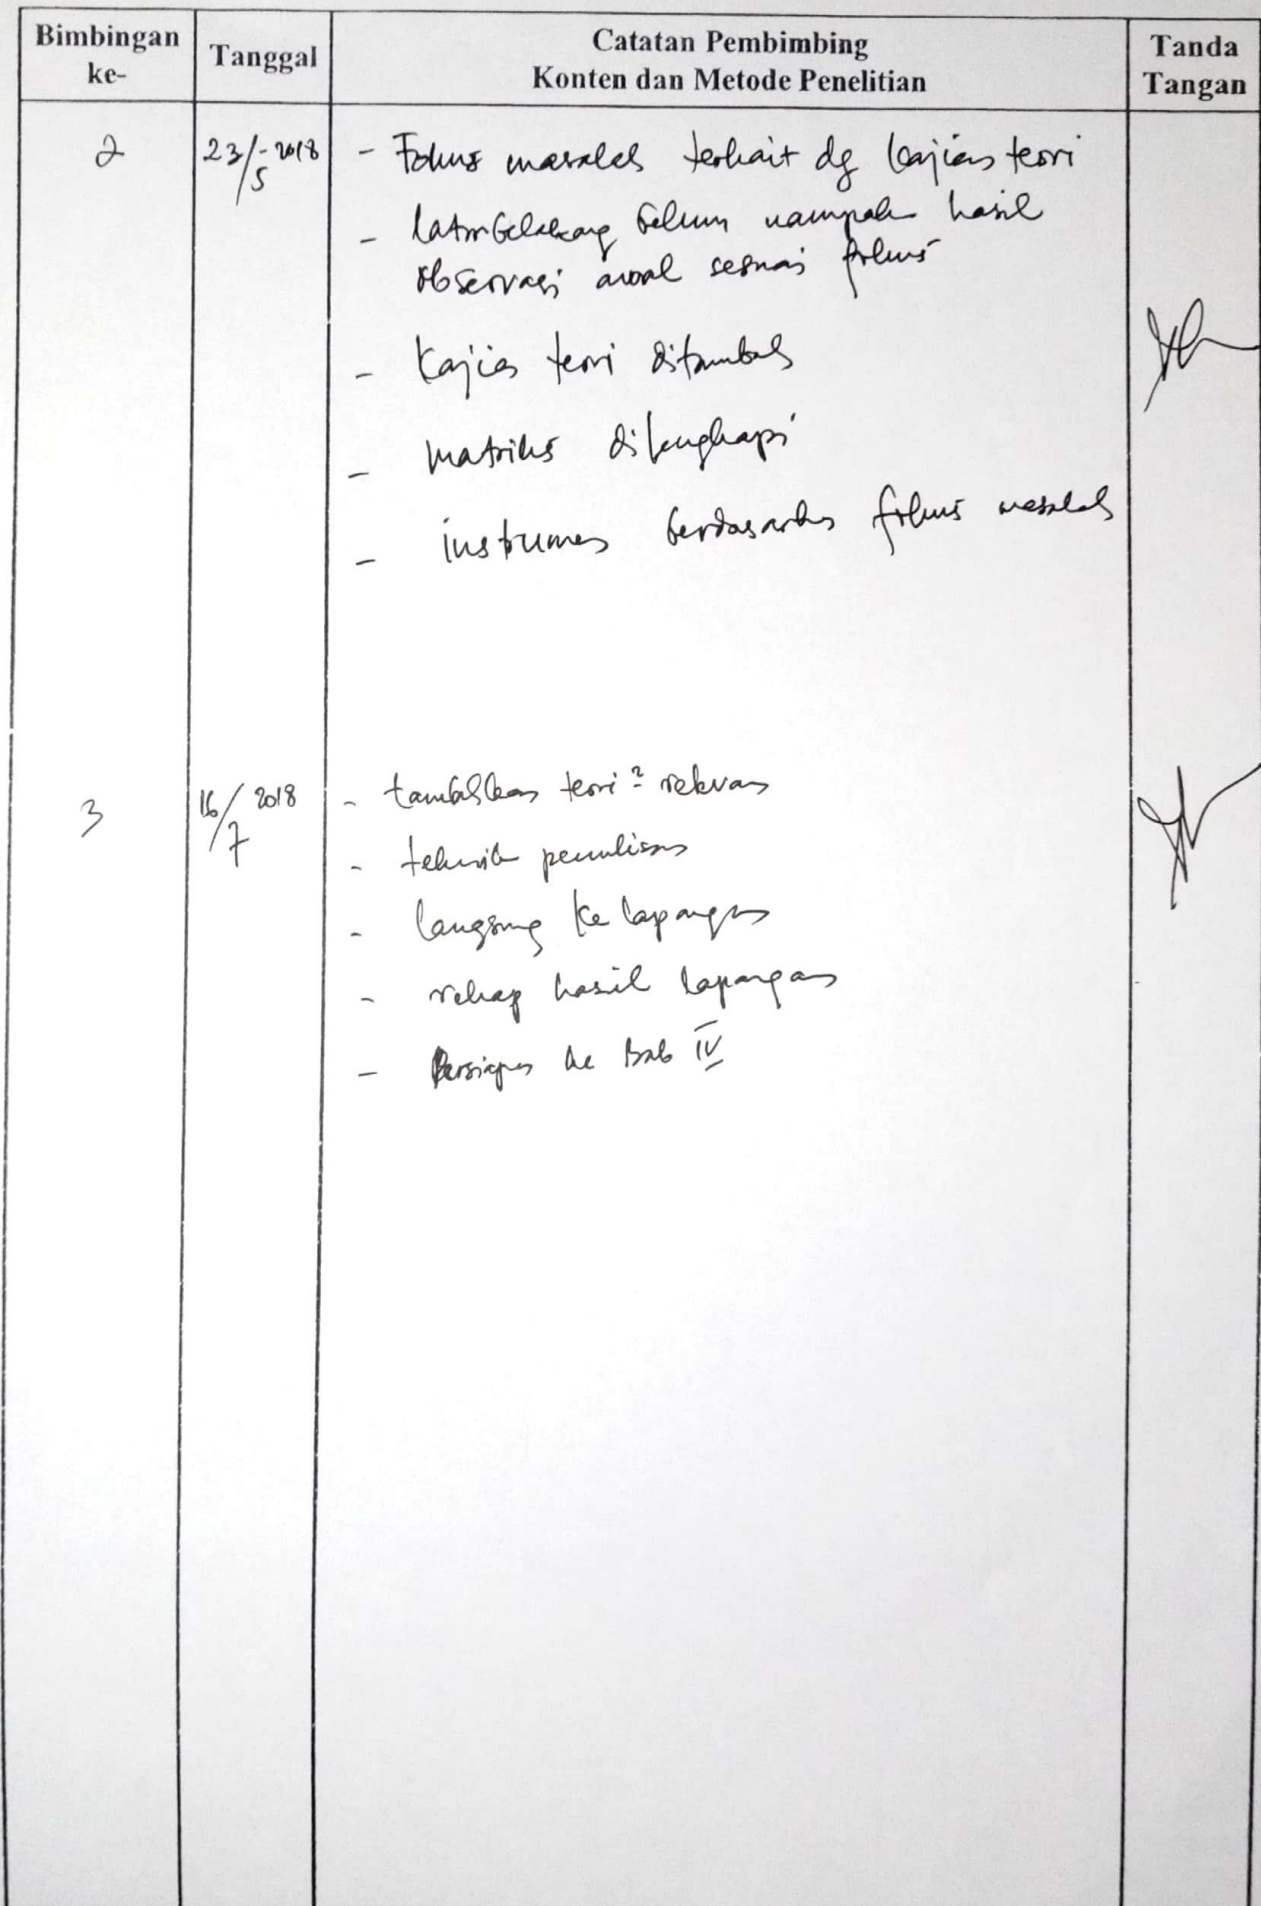 Bimbingan ke-
Tanggal
Catatan Pembimbing
Konten dan Metode Penelitian
Tanda Tangan
2
23/5 - 2018
- Fokus masalah terkait dg kajian teori
- latarbelakang belum nampak hasil
observasi awal sesuai fokus
- Kajian teori ditambah
- matriks dilengkapi
- instrumen berdasarkan fokus masalah
3
16/7 2018
- tambahkan teori² relevan
- teknik penulisan
- langsung ke lapangan
- rekap hasil lapangan
- Persiapan ke Bab IV